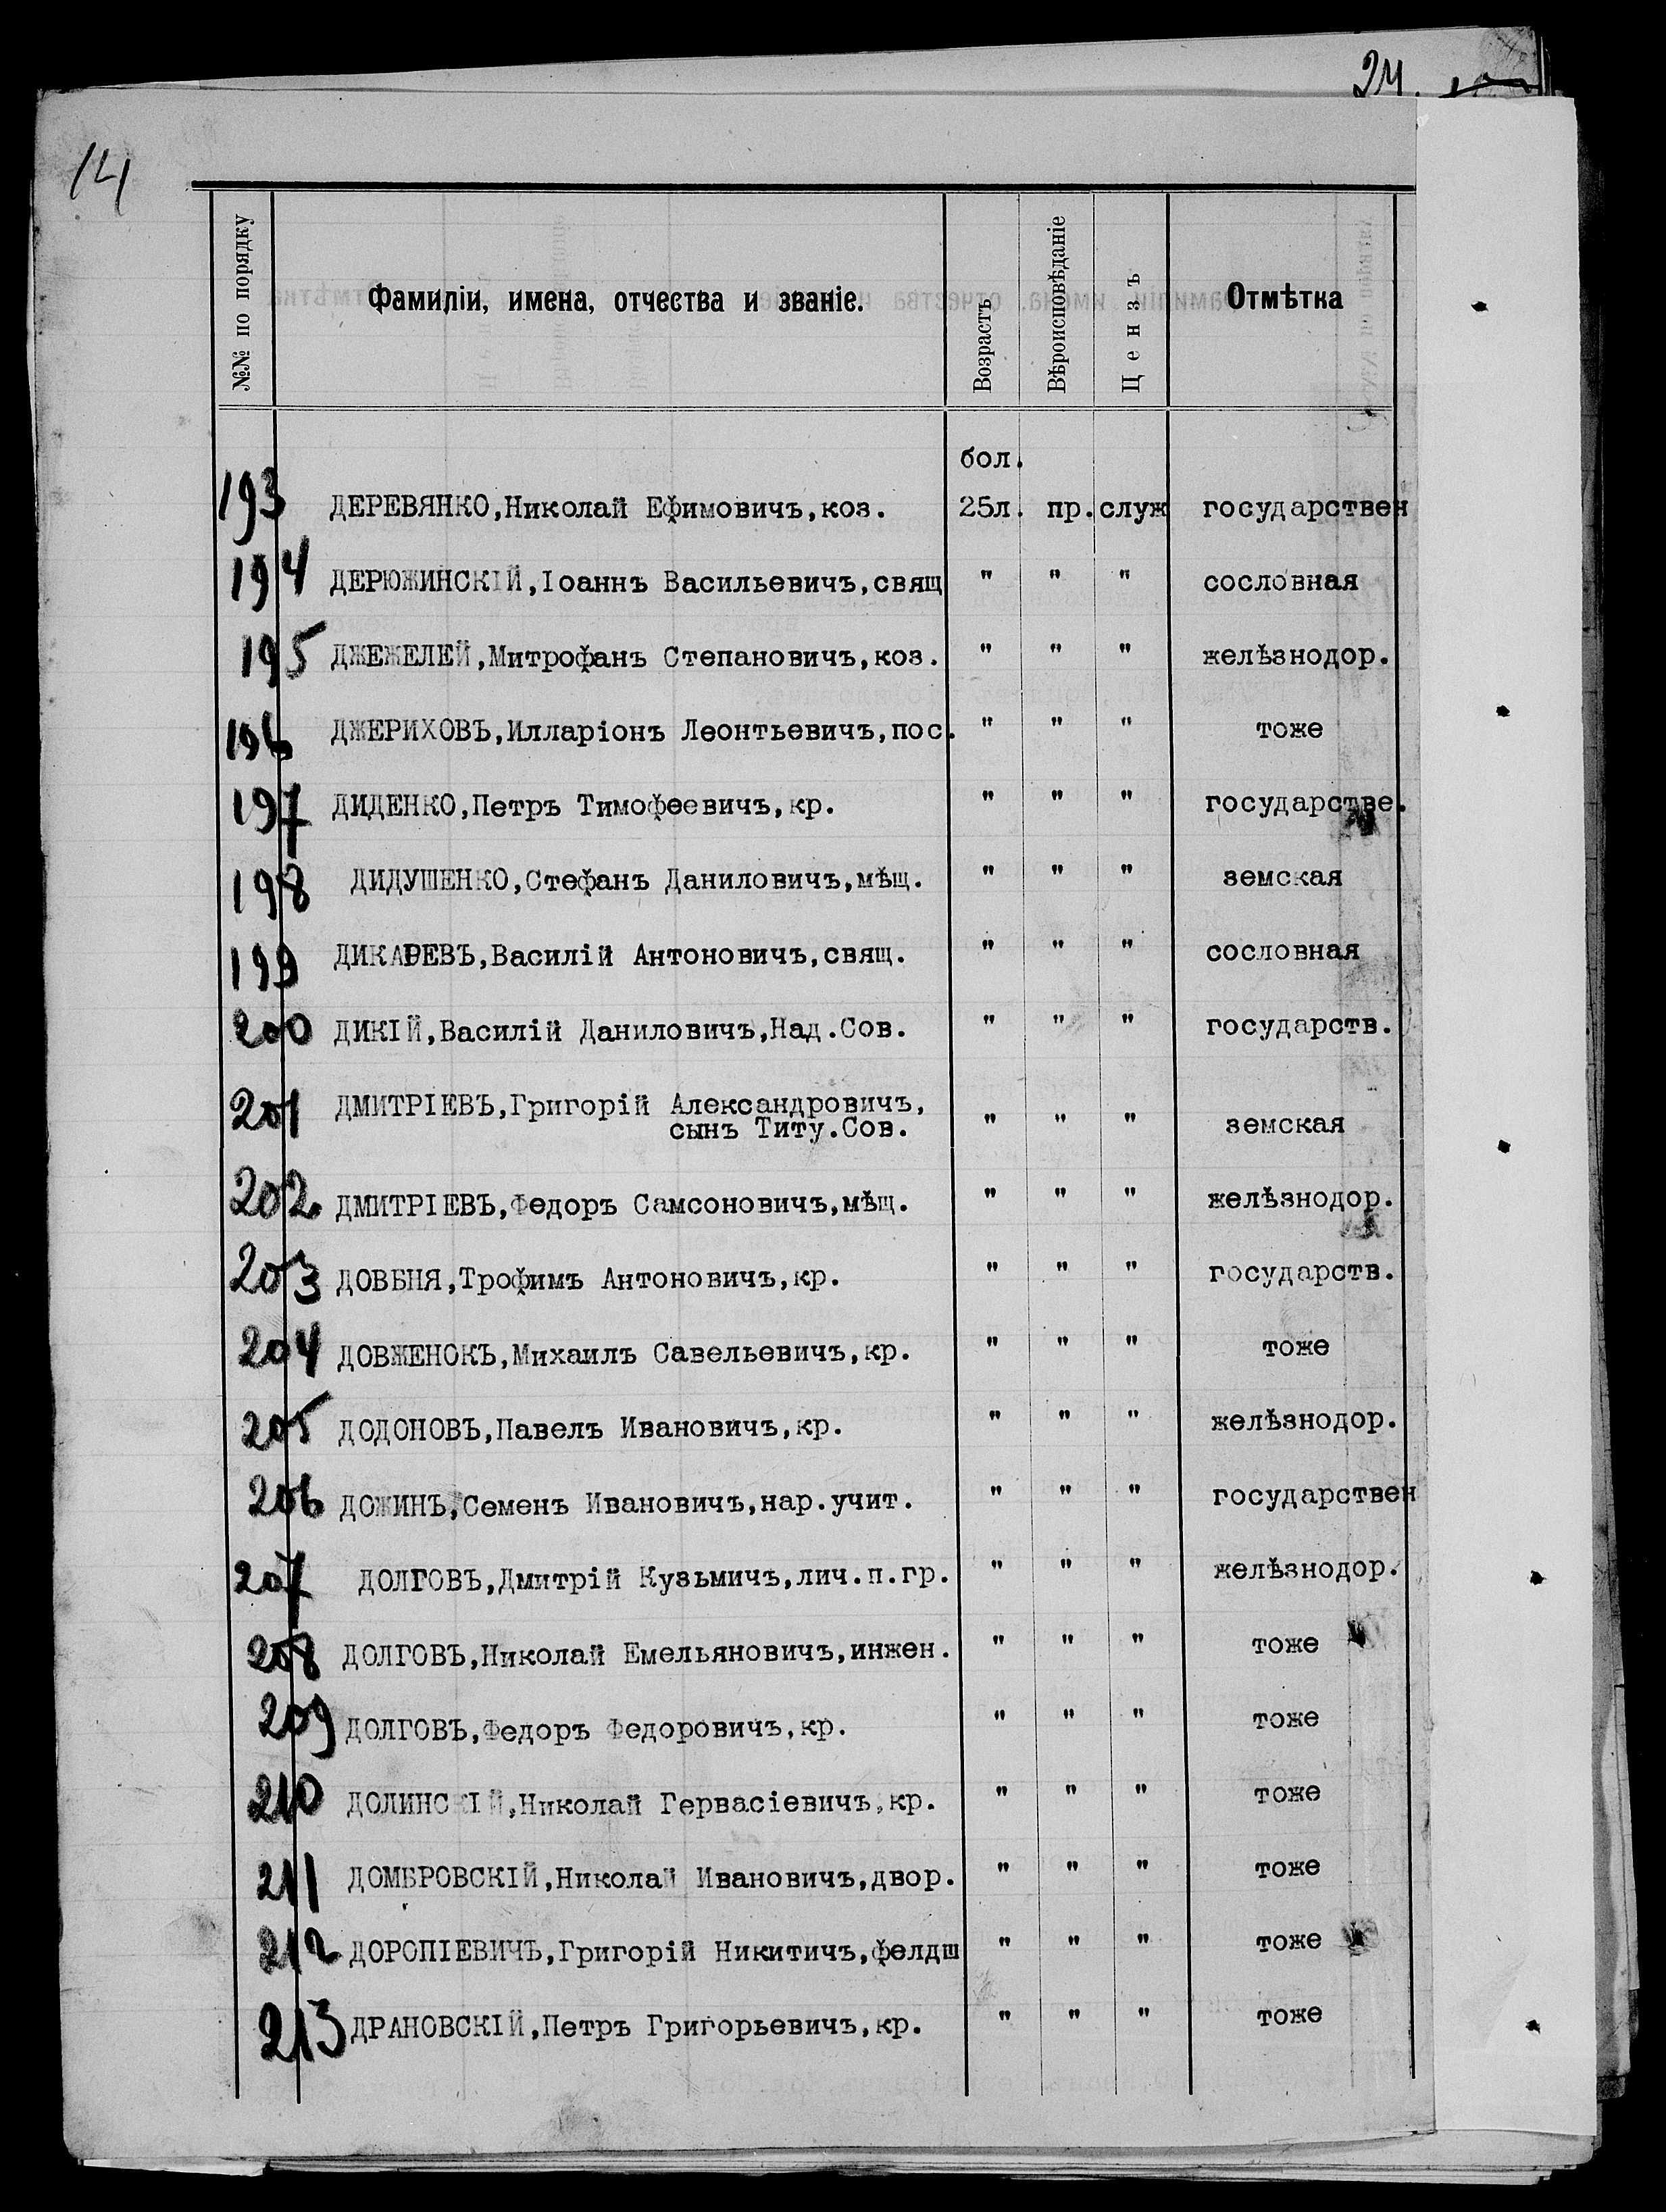 24.
14
№№ по порядку Фамиліи, имена, отчества и званіе. Возрастъ Вѣроисповѣданіе Цензъ Отмѣтка
бол.
193 ДЕРЕВЯНКО,Николай Ефимовичъ,коз. 25л. пр. служ государствен
194 ДЕРЮЖИНСКІЙ,Іоаннъ Васильевичъ,свящ " " " сословная
195 ДЖЕЖЕЛЕЙ,Митрофанъ Степановичъ,коз. " " " желѣзнодор.
196 ДЖЕРИХОВЪ,Илларіонъ Леонтьевичъ,пос. " " " тоже
197 ДИДЕНКО,Петръ Тимофеевичъ,кр. " " " государстве.
198 ДИДУШЕНКО,Стефанъ Даниловичъ,мѣщ. " " " земская
199 ДИКАРЕВЪ,Василій Антоновичъ,свящ. " " " сословная
200 ДИКІЙ,Василій Даниловичъ,Над.Сов. " " " государств.
201 ДМИТРІЕВЪ,Григорій Александровичъ,
сынъ Титу.Сов. " " " земская
202 ДМИТРІЕВЪ,Федоръ Самсоновичъ,мѣщ. " " " желѣзнодор.
203 ДОВБНЯ,Трофимъ Антоновичъ,кр. " " " государств.
204 ДОВЖЕНОКЪ,Михаилъ Савельевичъ,кр. " " " тоже
205 ДОДОНОВЪ,Павелъ Ивановичъ,кр. " " " желѣзнодор.
206 ДОЖИНЪ,Семенъ Ивановичъ,нар.учит. " " " государствен
207 ДОЛГОВЪ,Дмитрій Кузьмичъ,лич.п.гр. " " " желѣзнодор.
208 ДОЛГОВЪ,Николай Емельяновичъ,инжен. " " " тоже
209 ДОЛГОВЪ,Федоръ Федоровичъ,кр. " " " тоже
210 ДОЛИНСКІЙ,Николай Гервасіевичъ,кр. " " " тоже
211 ДОМБРОВСКІЙ,Николай Ивановичъ,двор. " " " тоже
212 ДОРОПІЕВИЧЪ,Григорій Никитичъ,фелдш " " " тоже
213 ДРАНОВСКІЙ,Петръ Григорьевичъ,кр. " " " тоже